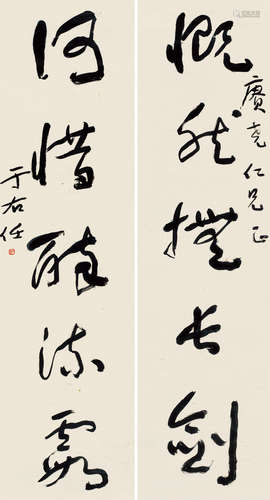 賡堯仁兄正
慨然撫長劍
何惜醉流霞
于右任